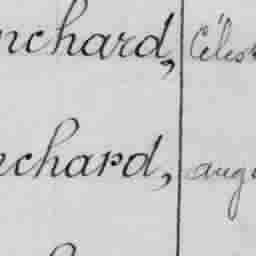 nchard, Céles
chard, augu